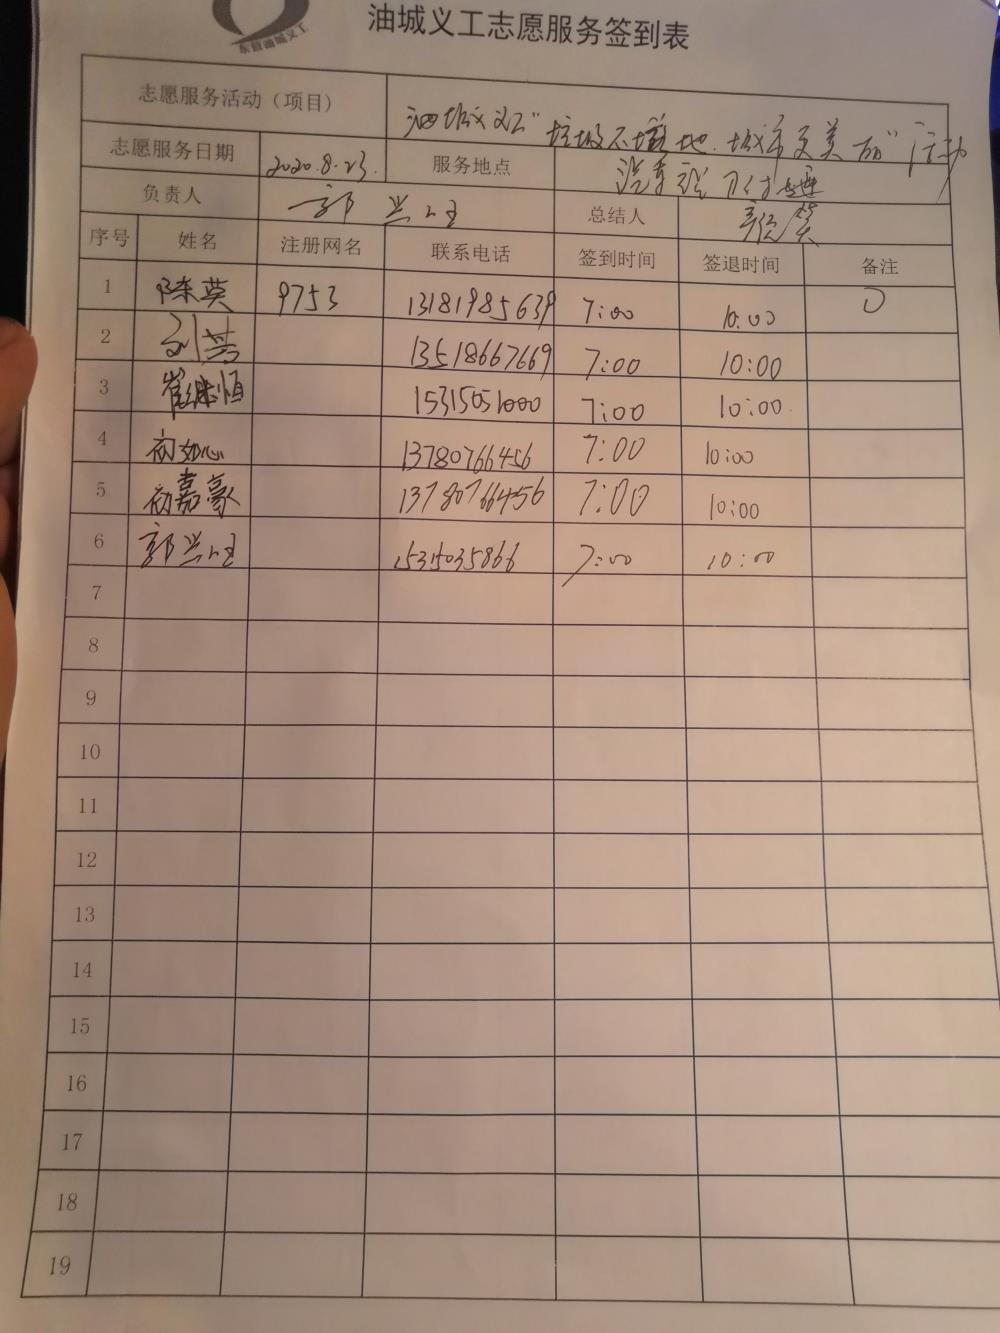 东营油城义工
油城义工志愿服务签到表
志愿服务活动（项目） 油城义工"垃圾不落地.城市更美丽"活动
志愿服务日期 2020.8.23. 服务地点 汽车站
负责人 郭兴 总结人
序号 姓名 注册网名 联系电话 签到时间 签退时间 备注
1 陈英 9753 13181985639 7:00 10:00
2 刘芳 13518667669 7:00 10:00
3 崔继恒 15315051000 7:00 10:00
4 初如心 13780766456 7:00 10:00
5 初嘉豪 13780766456 7:00 10:00
6 郭兴 15315035866 7:00 10:00
7
8
9
10
11
12
13
14
15
16
17
18
19